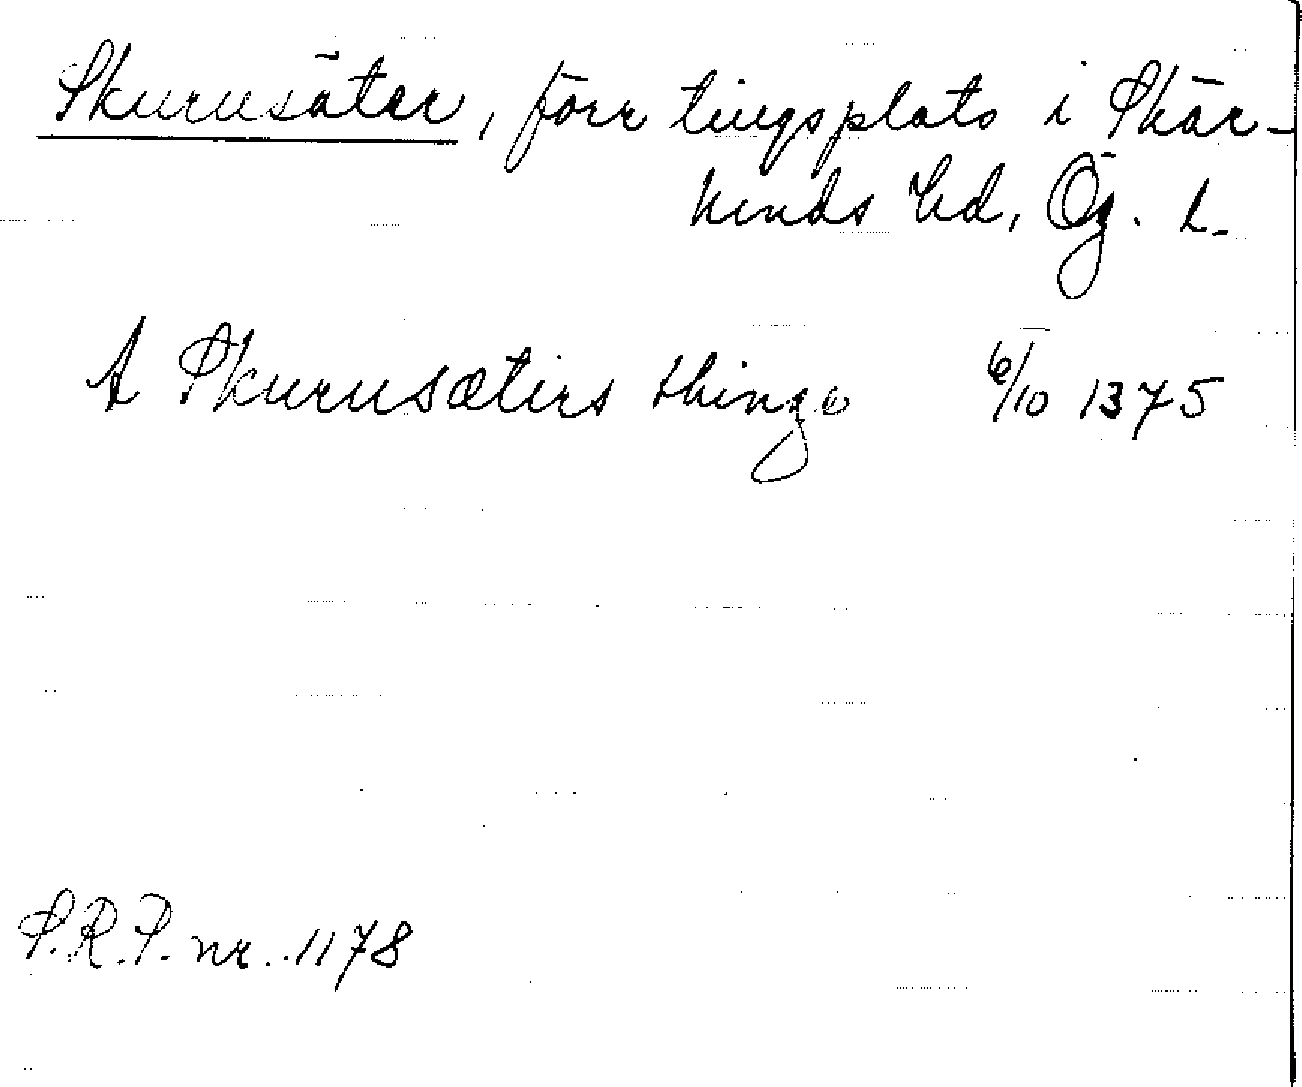 Skurusäter, förr tingsplats i Skär-
kinds hd, Ög. L.
A Skurusætirs thinge 6/10 1375
S.R.P. nr. 1178